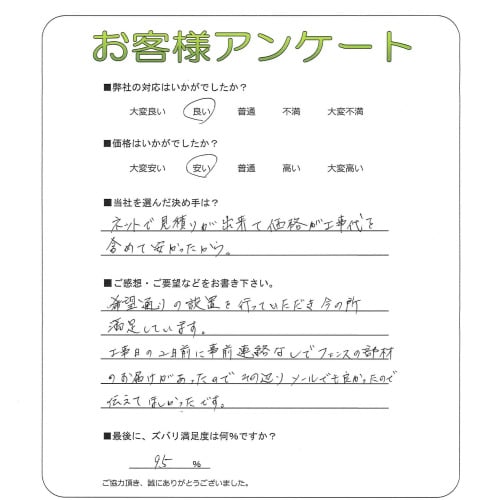 お客様アンケート
■弊社の対応はいかがでしたか?
大変良い 良い 普通 不満 大変不満
■価格はいかがでしたか?
大変安い 安い 普通 高い 大変高い
■当社を選んだ決め手は?
ネットで見積りが出来て価格が工事代を
含めて安かったから。
■ご感想・ご要望などをお書き下さい。
希望通りの設置を行っていただき今の所
満足しています。
工事日の2日前に事前連絡なしでフェンスの部材
のお届けがあったのでその辺りメールでも良かったので
伝えてほしかったです。
■最後に、ズバリ満足度は何%ですか?
95 %
ご協力頂き、誠にありがとうございました。